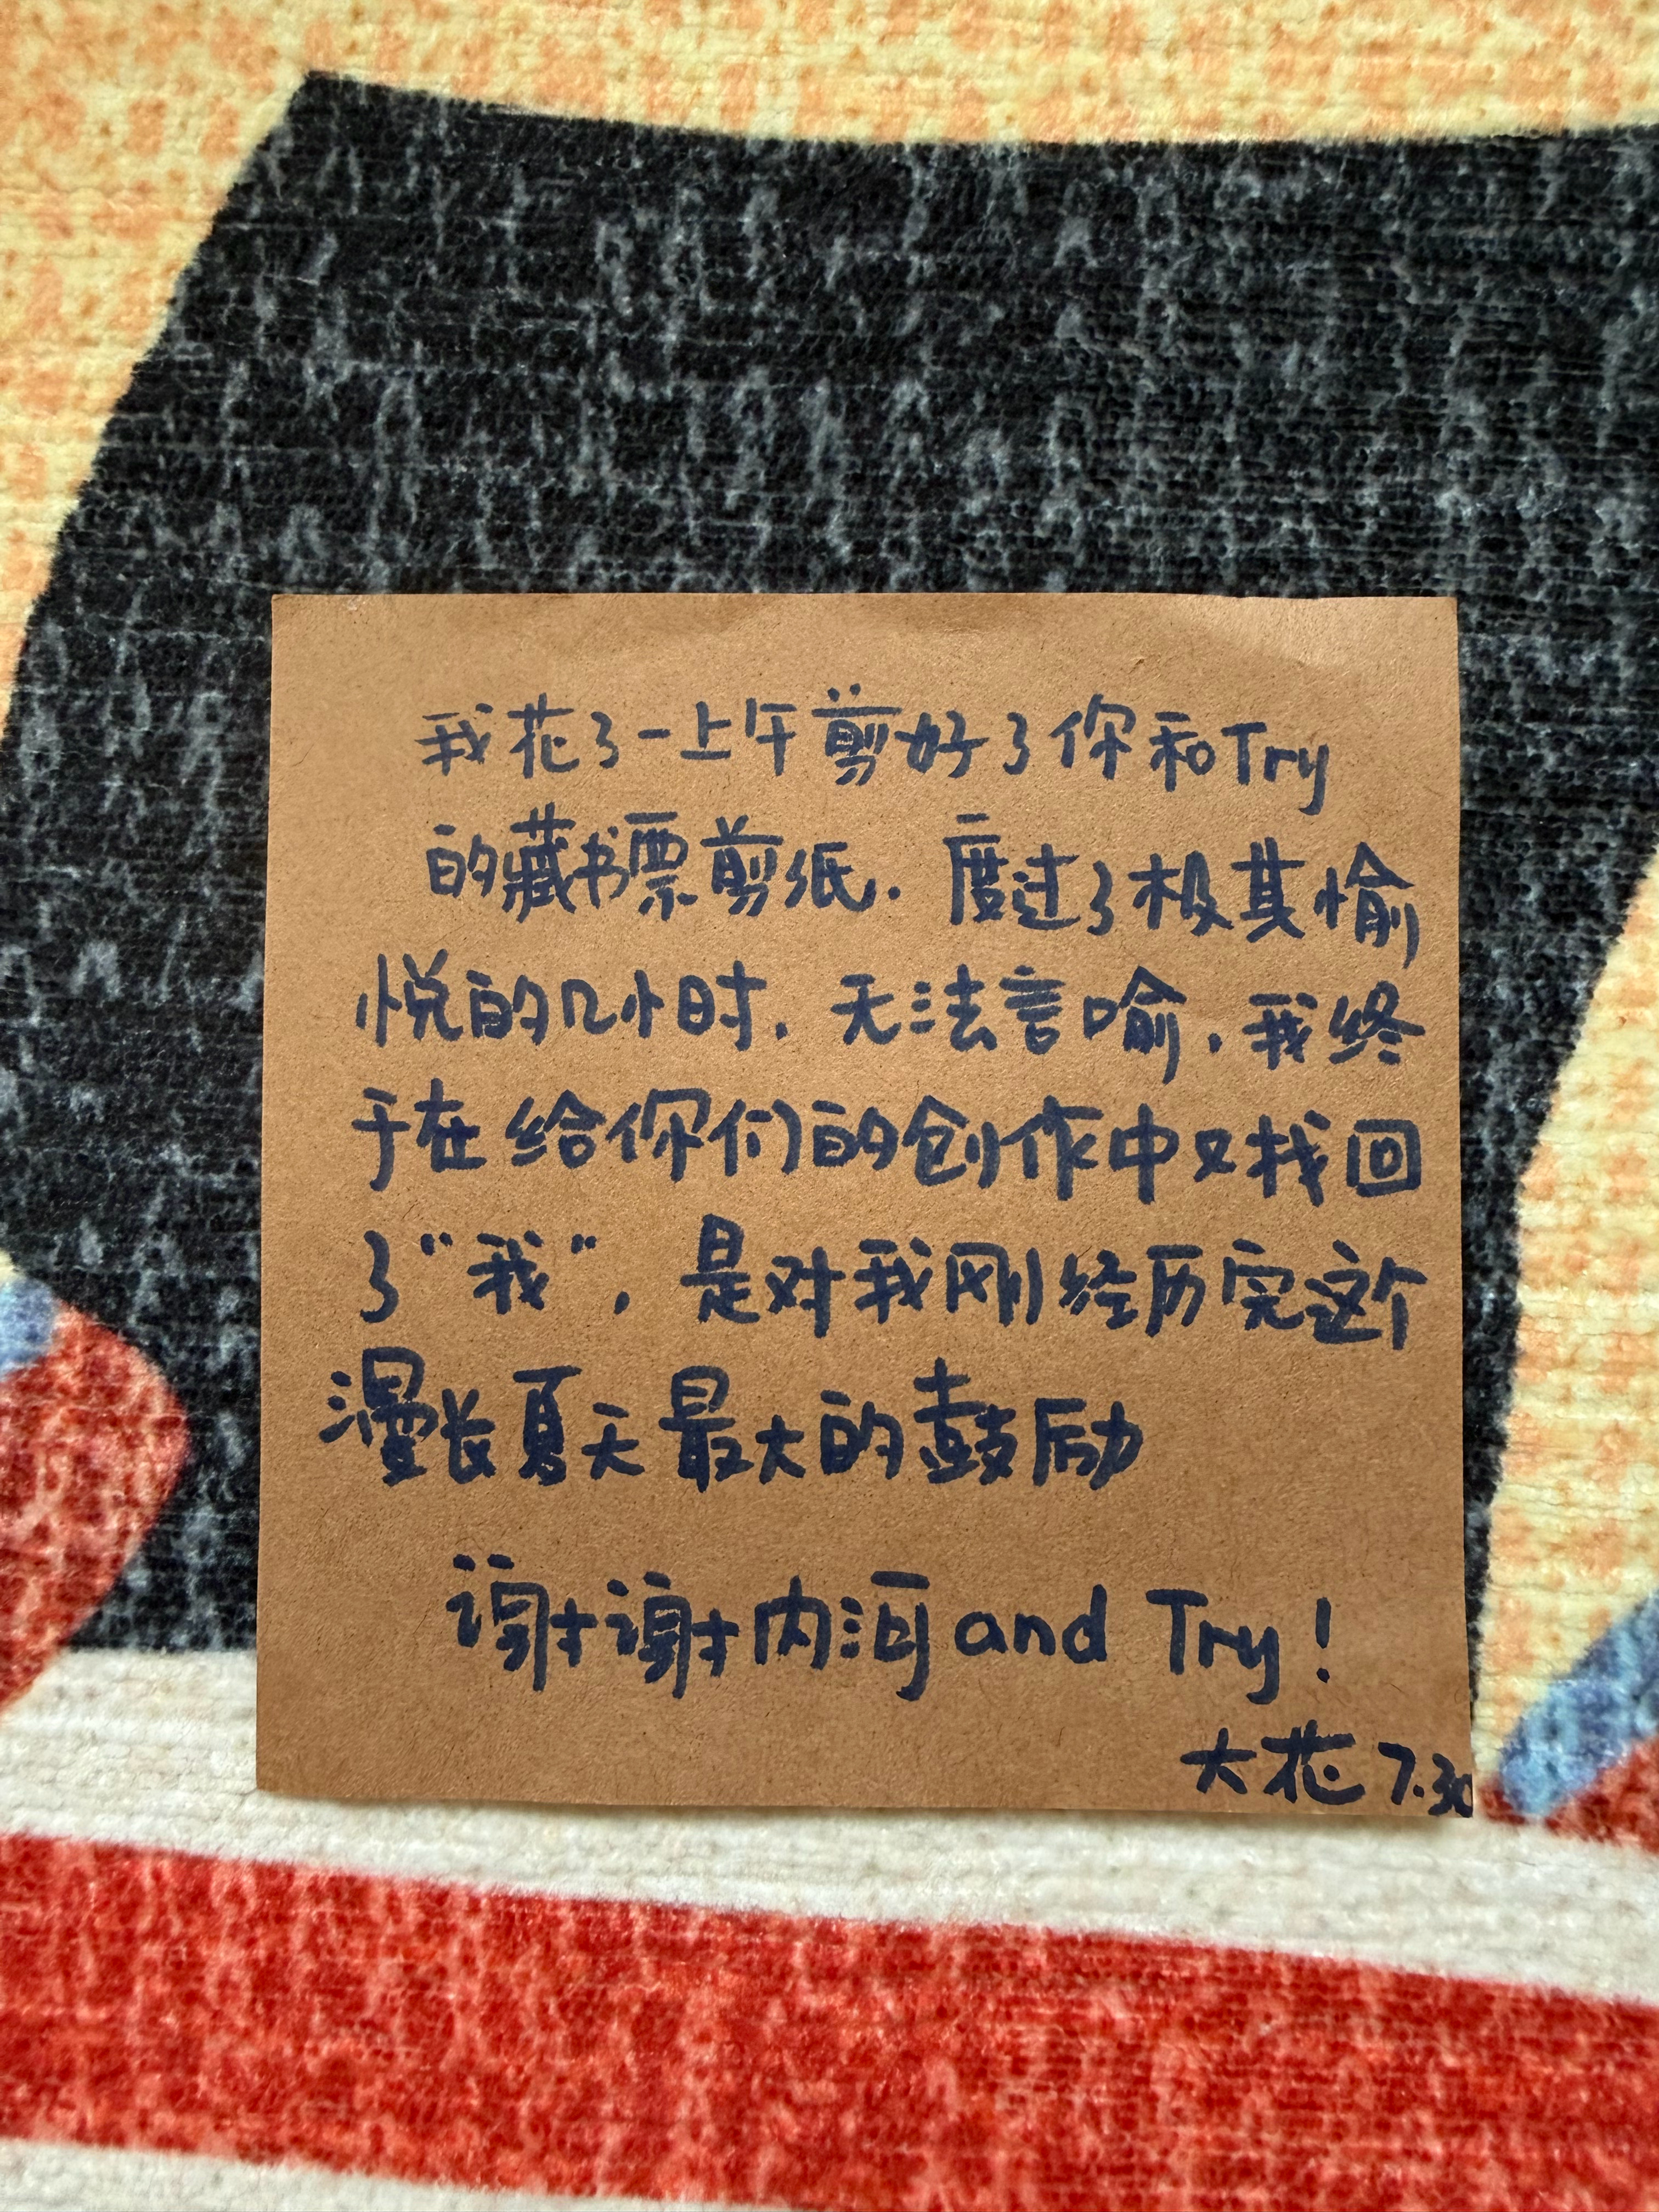 我花了一上午剪好了你和Try
的藏书票剪纸.度过了极其愉
悦的几小时.无法言喻.我终
于在给你们的创作中又找回
了“我”,是对我刚经历完这个
漫长夏天最大的鼓励
谢谢内河 and Try!
大花 7.30